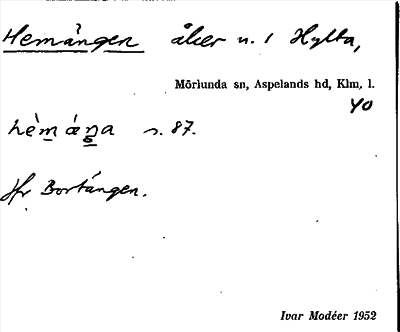 Hemången åker n. 1 Hylta,
Mörlunda sn, Aspelands hd, Klm, l.
40
hèm áŋa s. 87.
Jfr Bortången.
Ivar Modéer 1952